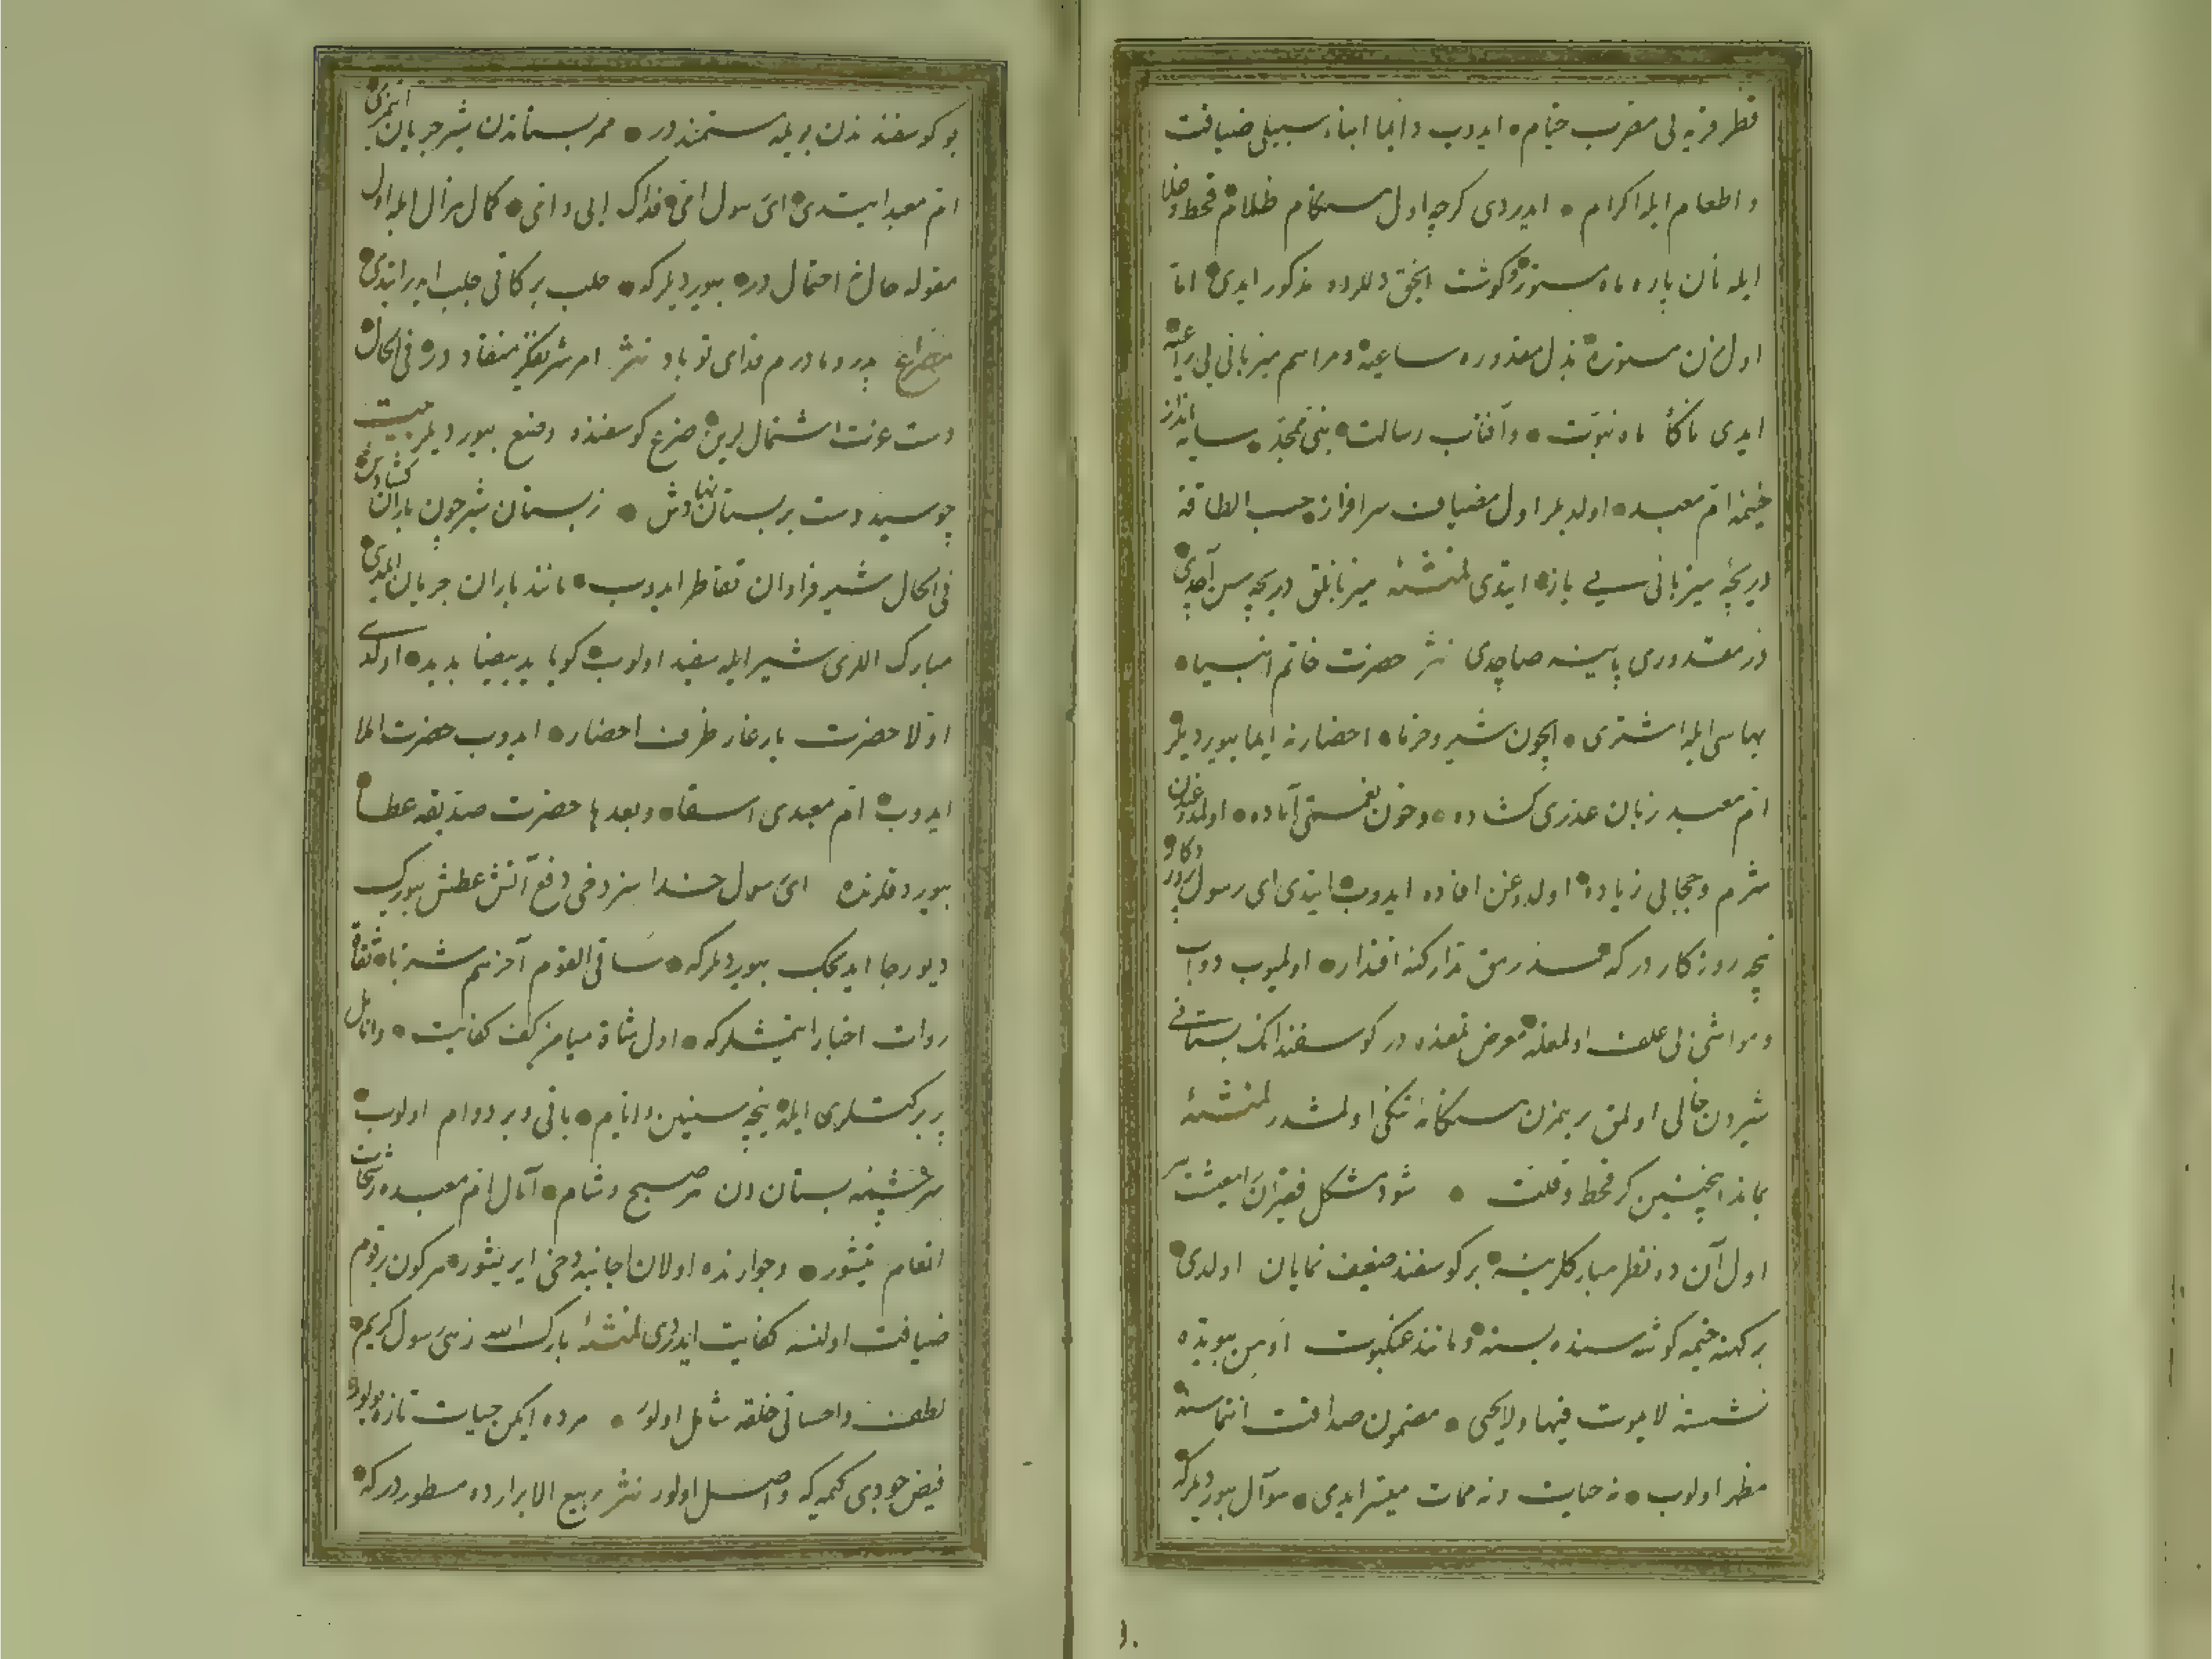 قطر قربه لی مضرب خیام ایدوب دائما ابناء سبیلی ضیافت
و اطعام ایله اکرام ایدردی کرچه اول هنکام ظلام قحط و غلا
ایله نان پاره ماه و کوشت انجق دللرده مذکور ایدی اما
اول زن مستوره بذل مقدوره ساعیه و مراسم میزبانی یی راعیه
ایدی ناکاه ماه نبوت و آفتاب رسالت بنی ممجد سایه انداز
خیمه ام معبد اولدیلر اول مضیافت سرافراز حسب الطاقه
دریچه میزبانی سی باز ایتدی لمنشئه میزبانلق دریچه سن آچدی
در مقدوری پاینه صاچدی نثر حضرت خاتم انبیا
بهاسی ایله اشتری ایچون شیر و خرما احضارنه ایما بیوردیلر
ام معبد زبان عذری کشاده و خون نعمتی آماده اولمدوغندن
شرم و حجابی زیاده اولدوغن افاده ایدوب ایتدی ای رسول
نیچه روزکار در که سد رمق تدارکنه اقتدار اولمیوب دواب
و مواشی بی علف اولمغله معرض تلفده در کوسفندانک پستانی
شیردن خالی اولمق بزم زن سکانه تنکی اولمشدر لمنشئه
بماند اینچنین کر قحط و قلت شود مشکل فقیرانرا معیشت
اول آن ده نظر مبارکلرینه بر کوسفند ضعیف نمایان اولدی
بر کهنه خیمه کوشه سنده بسته و مانند عنکبوت اوهن بیوتده
نشسته لا یموت فیها ولا یحیی مضمون صداقت انتماسنه
مظهر اولوب نه حیات و نه ممات میسر ایدی سؤال بیوردیلر که
بو کوسفند ندن بویله ستمنددر ممر پستاندن شیر جریان ایتمزمی
ام معبد ایتدی ای رسول امی فداک ابی و امی کمال هزال ایله اول
مقوله حال نه احتمال در بیوردیلر که حلب برکاتی جلب ایدر ایتدی
مصراع پدر و مادرم فدای تو باد نثر امر شریفکز منقاد در فی الحال
دست عزت اشتمال لرین ضرع کوسفنده وضع بیوردیلر بیت
چو سید دست بر پستان نهادش ز پستان شیر چون باران کشادش
فی الحال شیر فراوان تقاطر ایدوب مانند باران جریان ایلدی
مبارک اللری شیر ایله سفید اولوب کویا ید بیضا بدید اولدی
اولا حضرت یار غار ظرف احضار ایدوب حضرت املا
ایدوب ام معبدی اسقا و بعدها حضرت صدیقه عطا
بیوردقلرنده ای رسول خدا سز دخی دفع آتش عطش بیورک
دیو رجا ایدیجک بیوردیلر که ساقی القوم آخرهم شربا ثقات
روات اخبار ایتمشلر که اول شاة میامن کف کفایت و انامل
پر برکتلری ایله نیچه سنین و ایام باقی و بر دوام اولوب
سرچشمه پستان دن هر صبح و شام آمال ام معبده رشحات
انعام یتشور و جوارنده اولان اجانبه دخی ایریشور هر کون بر قوم
ضیافت اولنسه کفایت ایدردی لمنشئه بارک الله زهی رسول کریم
لطف و احسانی خلقه شامل اولور مرده ایکن حیات تازه بولور
فیض جودی کیمه که واصل اولور نثر ربیع الابرارده مسطوردر که